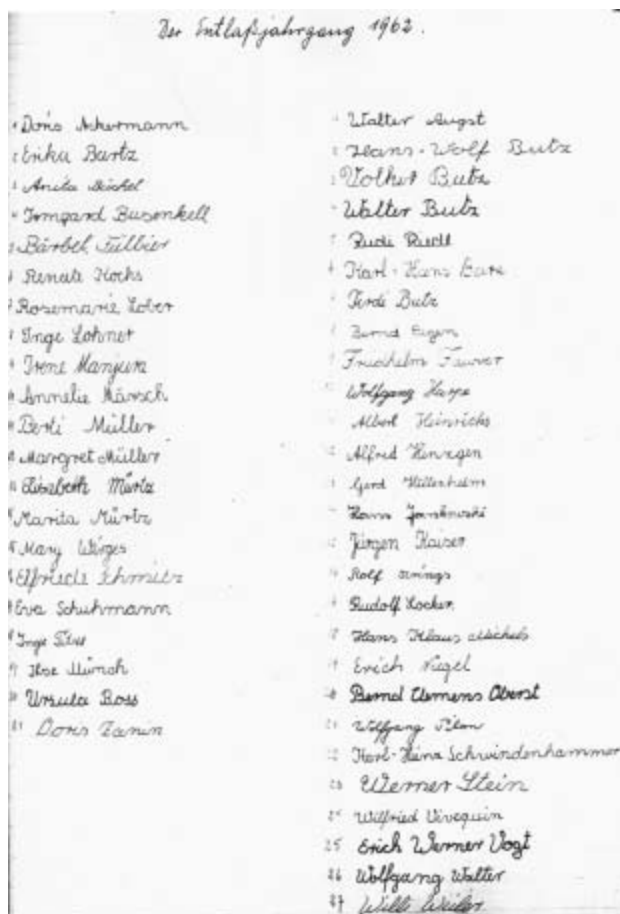 Der Entlaßjahrgang 1962.
Doris Ackermann
Erika Bartz
Anita
Irmgard Busenkell
Bärbel Füllbier
Renate Kochs
Rosemarie Lober
Inge Lohner
Irene Manjura
Annelie Märsch
Berti Müller
Margret Müller
Elisabeth Mürtz
Marita Mürtz
Mary Wirges
Elfriede Schmitz
Eva Schuhmann
Inge
Ilse Münch
20 Ursula Boss
21 Doris Zanin
Walter Augst
Hans-Wolf Butz
Volker Butz
Walter Butz
Rudi Riedl
Karl-Hans
Ferdi Butz
Bernd Eigen
Friedhelm
Wolfgang
Albert Heinrichs
Alfred
Gerd Hillenheim
Hans Jankowski
Jürgen Kaiser
Rolf
Rudolf Locker
Hans Klaus Michels
Erich Nagel
Bernd Clemens Oberst
Wolfgang
Karl-Heinz Schwindenhammer
Werner Stein
Wilfried Vivequin
25 Erich Werner Vogt
26 Wolfgang Walter
27 Willi Weiler